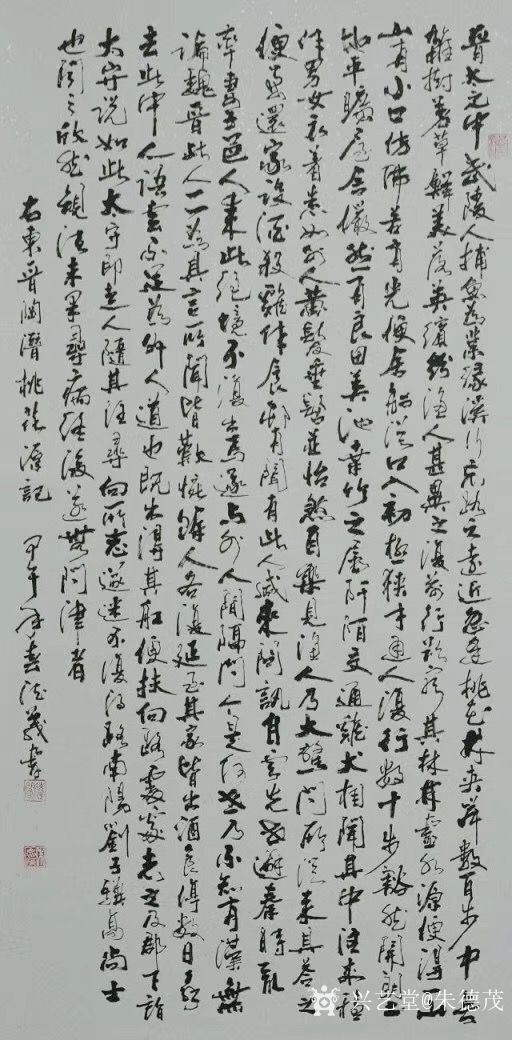 晉太元中武陵人捕魚為業緣溪行忘路之遠近忽逢桃花林夾岸數百步中無
雜樹芳草鮮美落英繽紛漁人甚異之復前行欲窮其林林盡水源便得一山
山有小口仿佛若有光便舍船從口入初極狹才通人復行數十步豁然開朗土
地平曠屋舍儼然有良田美池桑竹之屬阡陌交通雞犬相聞其中往來種
作男女衣著悉如外人黃髮垂髫並怡然自樂見漁人乃大驚問所從來具答之
便要還家設酒殺雞作食邨中聞有此人咸來問訊自云先世避秦時亂
率妻子邑人來此絕境不復出焉遂與外人間隔問今是何世乃不知有漢無
論魏晉此人一一為具言所聞皆歎惋餘人各復延至其家皆出酒食停數日辭
去此中人語云不足為外人道也既出得其船便扶向路處處志之及郡下詣
太守說如此太守即遣人隨其往尋向所志遂迷不復得路南陽劉子驥高尚士
也聞之欣然規往未果尋病終後遂無問津者
右東晉陶潛桃花源記 甲午年春德茂書
兴艺堂@朱德茂